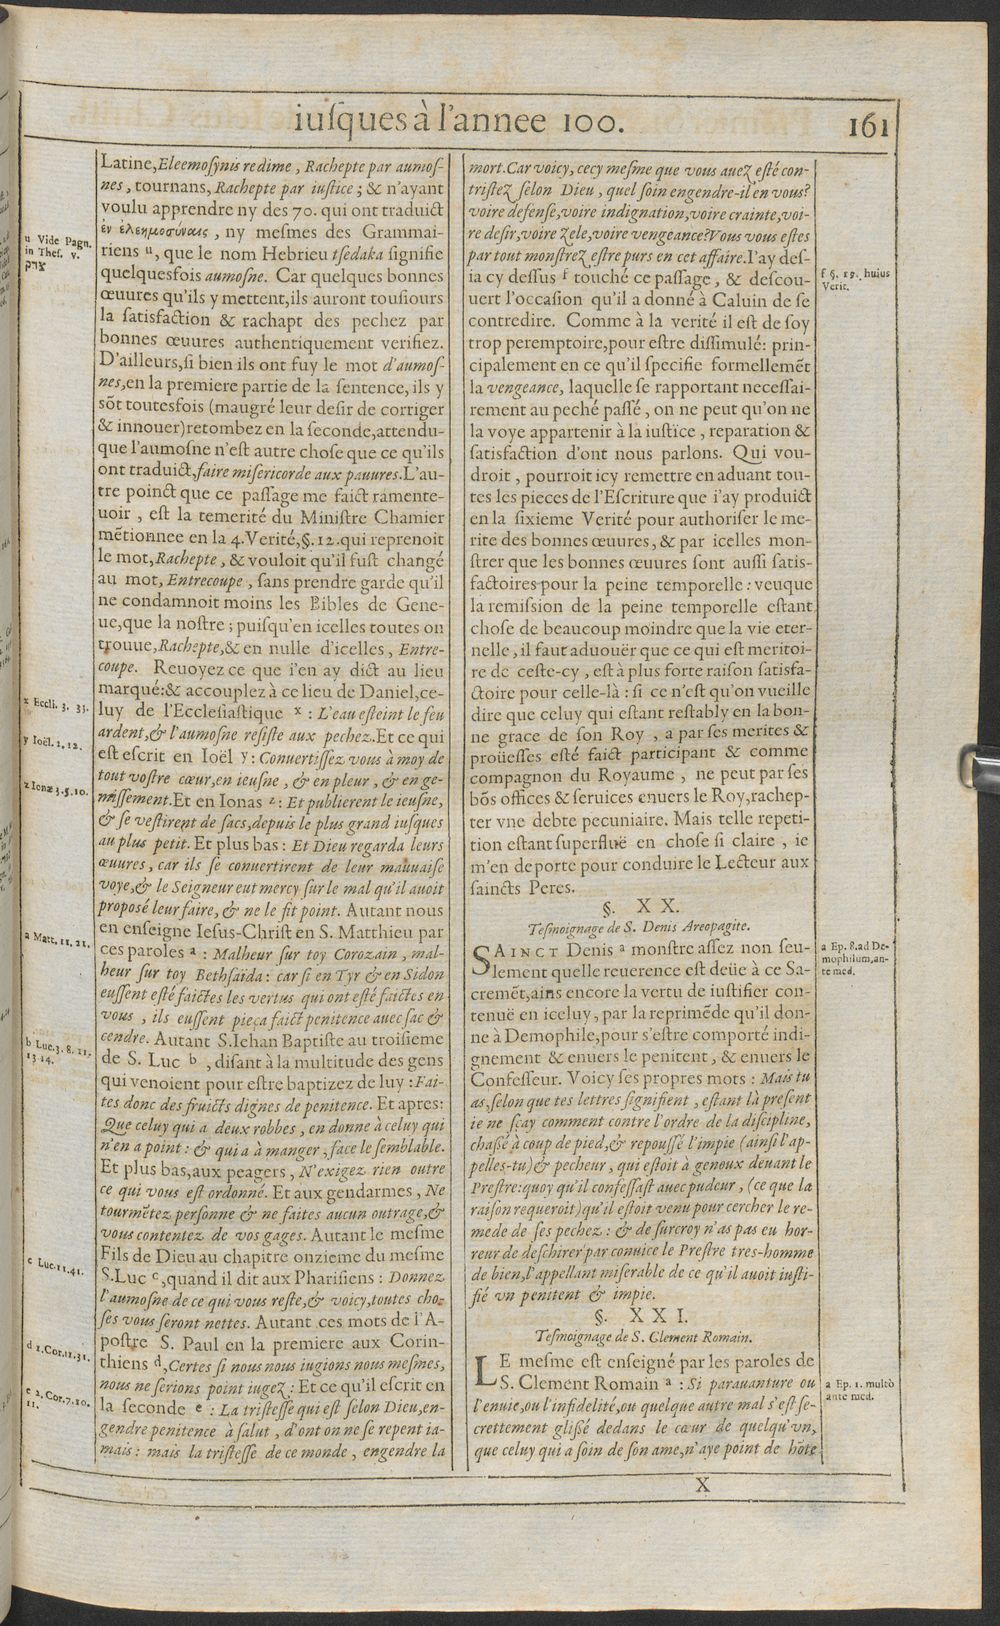 iusques à l'annee 100.
161
Latine, Eleemosynis redime, Rachepte par aumos-
nes, tournans, Rachepte par iustice; & n'ayant
voulu apprendre ny des 70. qui ont traduict
ἐν ἐλεημοσύναις, ny mesmes des Grammai-
riens u, que le nom Hebrieu tsedaka signifie
quelquesfois aumosne. Car quelques bonnes
œuures qu'ils y mettent, ils auront tousiours
la satisfaction & rachapt des pechez par
bonnes œuures authentiquement verifiez.
D'ailleurs, si bien ils ont fuy le mot d'aumos-
nes, en la premiere partie de la sentence, ils y
sõt toutesfois (maugré leur desir de corriger
& innouer) retombez en la seconde, attendu-
que l'aumosne n'est autre chose que ce qu'ils
ont traduict, faire misericorde aux pauures. L'au-
tre poinct que ce passage me faict ramente-
uoir, est la temerité du Ministre Chamier
mẽtionnee en la 4. Verité, §. 12. qui reprenoit
le mot, Rachepte, & vouloit qu'il fust changé
au mot, Entrecoupe, sans prendre garde qu'il
ne condamnoit moins les Bibles de Gene-
ue, que la nostre; puisqu'en icelles toutes on
trouue, Rachepte, & en nulle d'icelles, Entre-
coupe. Reuoyez ce que i'en ay dict au lieu
marqué: & accouplez à ce lieu de Daniel, ce-
luy de l'Ecclesiastique x: L'eau esteint le feu
ardent, & l'aumosne resiste aux pechez. Et ce qui
est escrit en Ioël y: Conuertissez vous à moy de
tout vostre cœur, en ieusne, & en pleur, & en ge-
missement. Et en Ionas z: Et publierent le ieusne,
& se vestirent de sacs, depuis le plus grand iusques
au plus petit. Et plus bas: Et Dieu regarda leurs
œuures, car ils se conuertirent de leur mauuaise
voye, & le Seigneur eut mercy sur le mal qu'il auoit
proposé leur faire, & ne le fit point. Autant nous
en enseigne Iesus-Christ en S. Matthieu par
ces paroles a: Malheur sur toy Corozain, mal-
heur sur toy Bethsaida: car si en Tyr & en Sidon
eussent esté faictes les vertus qui ont esté faictes en
vous, ils eussent pieça faict penitence auec sac &
cendre. Autant S. Iehan Baptiste au troisieme
de S. Luc b, disant à la multitude des gens
qui venoient pour estre baptizez de luy: Fai-
tes donc des fruicts dignes de penitence. Et apres:
Que celuy qui a deux robbes, en donne à celuy qui
n'en a point: & qui a à manger, face le semblable.
Et plus bas, aux peagers, N'exigez rien outre
ce qui vous est ordonné. Et aux gendarmes, Ne
tourmẽtez personne & ne faites aucun outrage, &
vous contentez de vos gages. Autant le mesme
Fils de Dieu au chapitre onzieme du mesme
S. Luc c, quand il dit aux Pharisiens: Donnez
l'aumosne de ce qui vous reste, & voicy, toutes cho-
ses vous seront nettes. Autant ces mots de l'A-
postre S. Paul en la premiere aux Corin-
thiens d, Certes si nous nous iugions nous mesmes,
nous ne serions point iugez: Et ce qu'il escrit en
la seconde e: La tristesse qui est selon Dieu, en-
gendre penitence à salut, d'ont on ne se repent ia-
mais: mais la tristesse de ce monde, engendre la
u Vide Pagn.
in Thes. v.
צדק
x Eccli. 3. 33.
y Ioël. 2, 12.
z Ionæ 3. 5. 10.
a Matt. 11, 21.
b Luc. 3. 8. 11.
13. 14.
c Luc. 11. 41.
d 1. Cor. 11. 31.
e 2. Cor. 7. 10.
11.
mort. Car voicy, cecy mesme que vous auez esté con-
tristez selon Dieu, quel soin engendre-il en vous?
voire defense, voire indignation, voire crainte, voi-
re desir, voire zele, voire vengeance? Vous vous estes
par tout monstrez estre purs en cet affaire. I'ay des-
ia cy dessus f touché ce passage, & descou-
uert l'occasion qu'il a donné à Caluin de se
contredire. Comme à la verité il est de soy
trop peremptoire, pour estre dissimulé: prin-
cipalement en ce qu'il specifie formellemẽt
la vengeance, laquelle se rapportant necessai-
rement au peché passé, on ne peut qu'on ne
la voye appartenir à la iustice, reparation &
satisfaction d'ont nous parlons. Qui vou-
droit, pourroit icy remettre en aduant tou-
tes les pieces de l'Escriture que i'ay produict
en la sixieme Verité pour authoriser le me-
rite des bonnes œuures, & par icelles mon-
strer que les bonnes œuures sont aussi satis-
factoires pour la peine temporelle: veuque
la remission de la peine temporelle estant
chose de beaucoup moindre que la vie eter-
nelle, il faut aduouër que ce qui est meritoi-
re de ceste-cy, est à plus forte raison satisfa-
ctoire pour celle-là: si ce n'est qu'on vueille
dire que celuy qui estant restably en la bon-
ne grace de son Roy, a par ses merites &
proüesses esté faict participant & comme
compagnon du Royaume, ne peut par ses
bõs offices & seruices enuers le Roy, rachep-
ter vne debte pecuniaire. Mais telle repeti-
tion estant superfluë en chose si claire, ie
m'en deporte pour conduire le Lecteur aux
saincts Peres.
§. XX.
Tesmoignage de S. Denis Areopagite.
SAINCT Denis a monstre assez non seu-
lement quelle reuerence est deüe à ce Sa-
cremẽt, ains encore la vertu de iustifier con-
tenuë en iceluy, par la reprimẽde qu'il don-
ne à Demophile, pour s'estre comporté indi-
gnement & enuers le penitent, & enuers le
Confesseur. Voicy ses propres mots: Mais tu
as, selon que tes lettres signifient, estant là present
ie ne sçay comment contre l'ordre de la discipline,
chassé à coup de pied, & repoussé l'impie (ainsi l'ap-
pelles-tu) & pecheur, qui estoit à genoux deuant le
Prestre: quoy qu'il confessast auec pudeur, (ce que la
raison requeroit) qu'il estoit venu pour cercher le re-
mede de ses pechez: & de surcroy n'as pas eu hor-
reur de deschirer par conuice le Prestre tres-homme
de bien, l'appellant miserable de ce qu'il auoit iusti-
fié vn penitent & impie.
§. XXI.
Tesmoignage de S. Clement Romain.
LE mesme est enseigné par les paroles de
S. Clement Romain a: Si parauanture ou
l'enuie, ou l'infidelité, ou quelque autre mal s'est se-
crettement glissé dedans le cœur de quelqu'vn,
que celuy qui a soin de son ame, n'aye point de hõte
f §. 19. huius
Verit.
a Ep. 8. ad De-
mophilum, an-
te med.
a Ep. 1. multò
ante med.
X